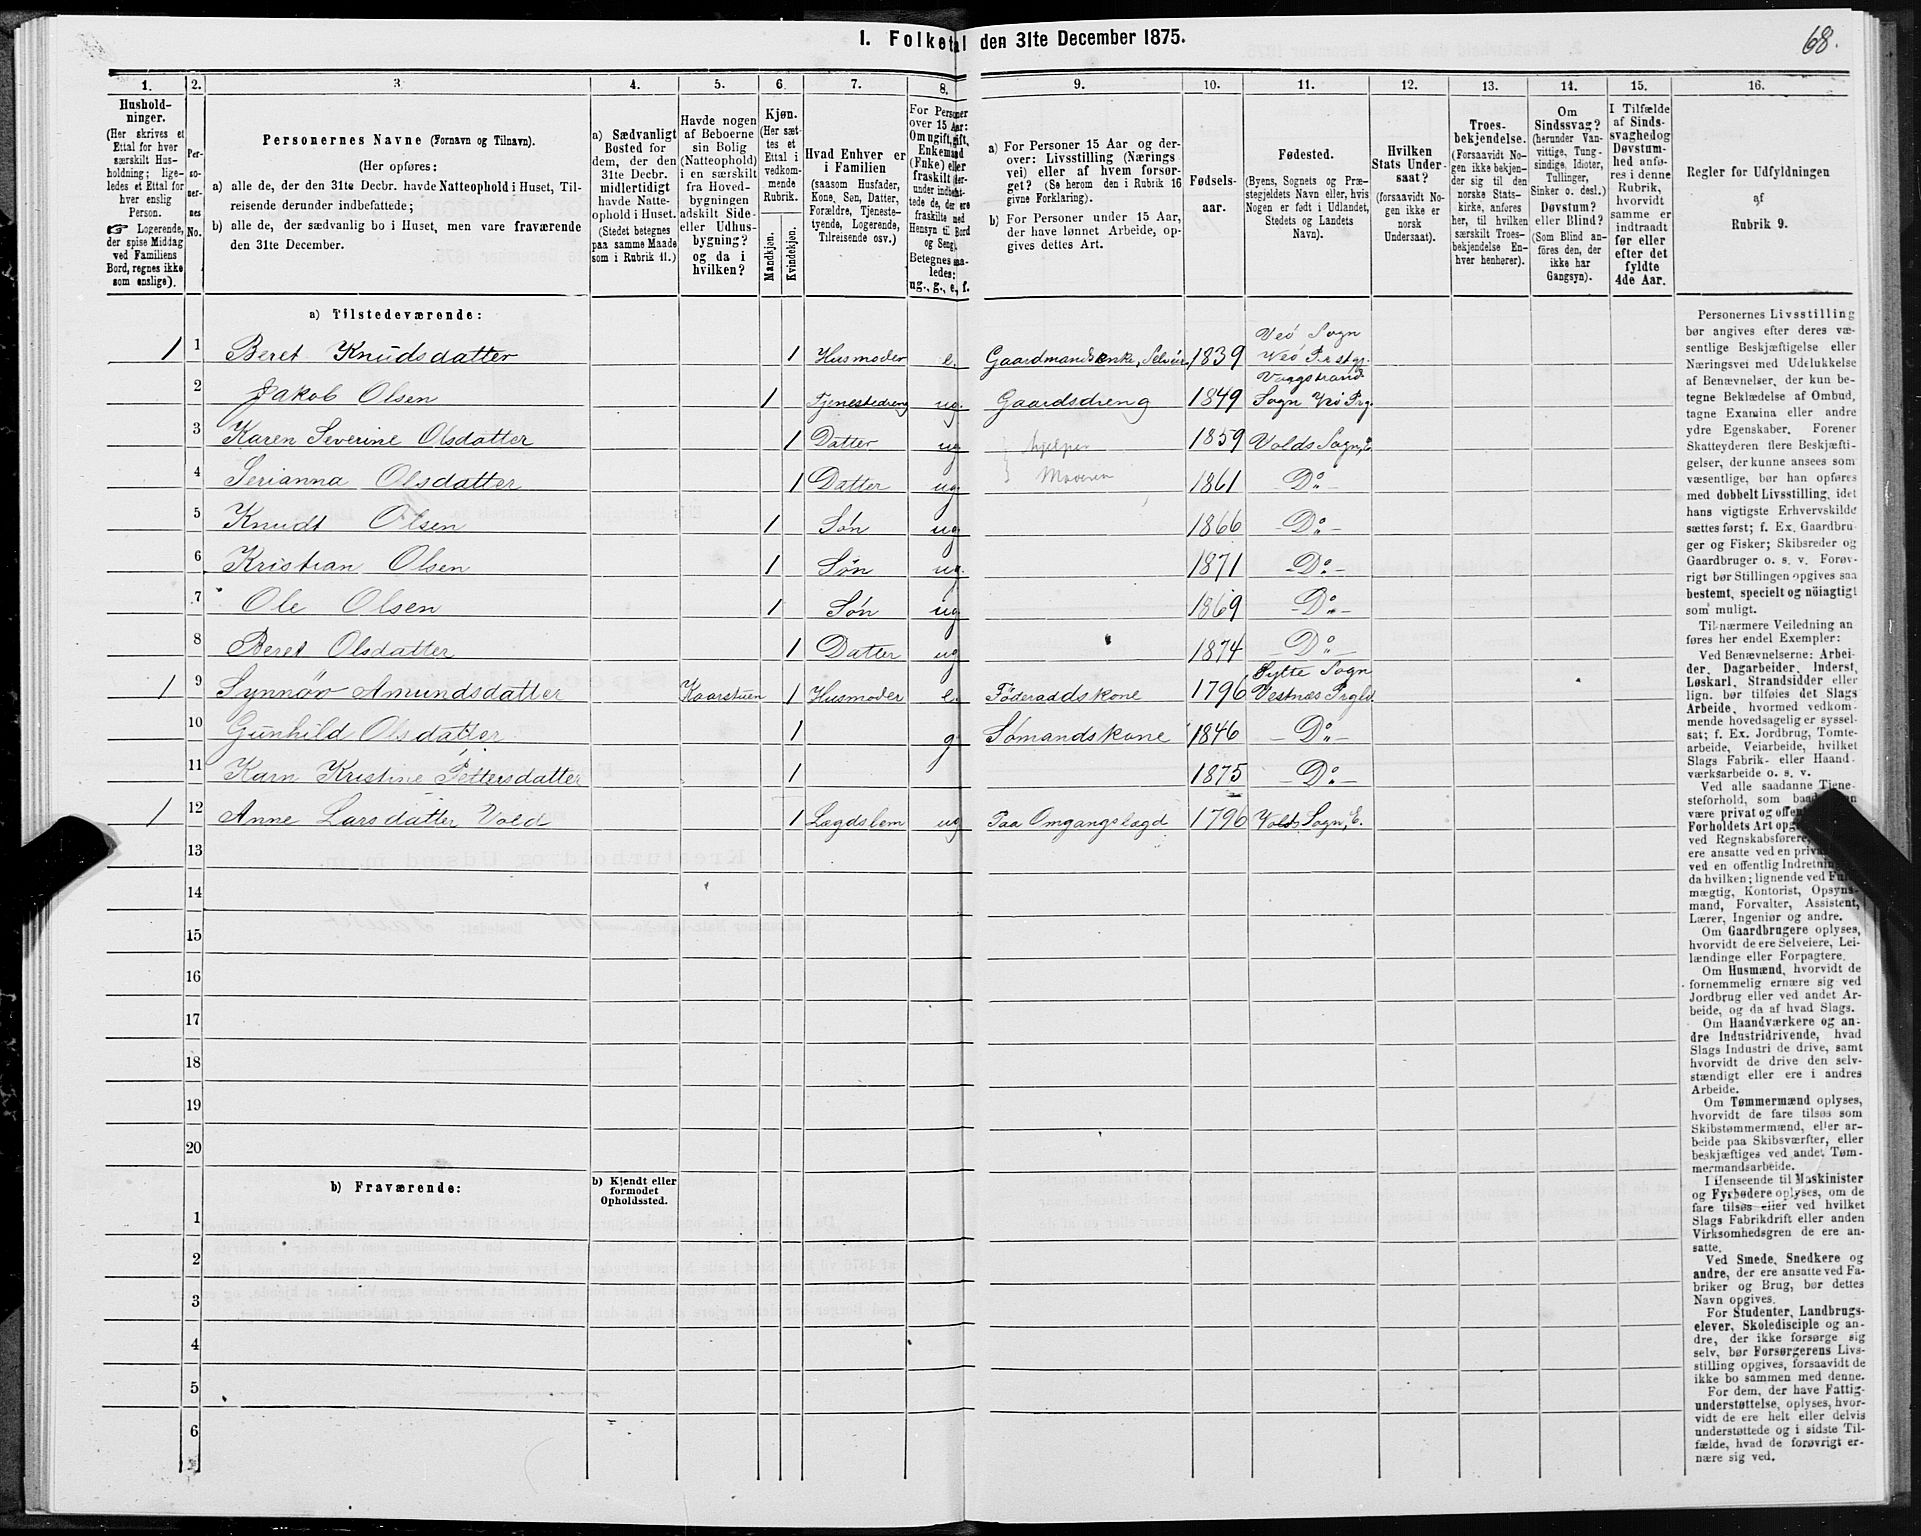 68.
I. Folketal den 31te December 1875.
1. 2. 3 4. 5. 6. 7. 8. 9. 10. 11. 12. 13. 14. 15. 16.
Hushold-
ninger.
(Her skrives et
Ettal for hver
særskilt Hus-
holdning; lige-
ledes et Ettal for
hver enslig
Person.
☞ Logerende,
der spise Middag
ved Familiens
Bord, regnes ikke
som enslige).
Per-
so-
ner-
nes
No.
Personernes Navne (Fornavn og Tilnavn).
(Her opføres:
a) alle de, der den 31te Decbr. havde Natteophold i Huset, Til-
reisende derunder indbefattede;
b) alle de, der sædvanlig bo i Huset, men vare fraværende
den 31te December.
a) Sædvanligt
Bosted for
dem, der den
31te Decbr.
midlertidigt
havde Natte-
ophold i Huset.
(Stedet betegnes
paa samme Maade
som i Rubrik 11.)
Havde nogen
af Beboerne
sin Bolig
(Natteophold)
i en særskilt
fra Hoved-
bygningen
adskilt Side-
eller Udhus-
bygning?
og da i
hvilken?
Kjøn.
(Her sæt-
tes et
Ettal i
vedkom-
mende
Rubrik.
Mandkjøn.
Kvindekjøn.
Hvad Enhver er
i Familien
(saasom Husfader,
Kone, Søn, Datter,
Forældre, Tjeneste-
tyende, Logerende,
Tilreisende osv.)
For Personer
over 15 Aar:
Om ugift, gift,
Enkemand
(Enke) eller
fraskilt
og Seng.
Betegnes saa-
ledes:
ug., g., e., f.
a) For Personer 15 Aar og der-
over: Livsstilling (Nærings
vei) eller af hvem forsør-
get? (Se herom den i Rubrik 16
givne Forklaring).
b) For Personer under 15 Aar,
der have lønnet Arbeide, op-
gives dettes Art.
Fødsels-
aar.
Fødested.
(Byens, Sognets og Præ-
stegjeldets Navn eller, hvis
Nogen er født i Udlandet,
Stedets og Landets
Navn).
Hvilken
Stats Under-
saat?
(forsaavidt No-
gen ikke er
norsk
Undersaat).
Troes-
bekjendelse.
(Forsaavidt No-
gen ikke bekjen-
der sig til den
norske Stats-
kirke, anføres
her, til hvilken
særskilt Troes-
bekjendelse En-
hver henhører).
Om
Sindssvag?
(herunder Van-
vittige, Tung-
sindige, Idioter,
Tullinger,
Sinker o. desl.)
Døvstum?
eller Blind?
(Som Blind an-
føres den, der
ikke har
Gangsyn).
I Tilfælde
af Sinds-
svaghed og
Døvstum-
hed anfø-
res i denne
Rubrik,
hvorvidt
samme er
indtraadt
før eller
efter det
fyldte
4de Aar.
Regler for Udfyldningen
af
Rubrik 9.
a) Tilstedeværende:
1 1 Beret Knudsdatter 1 Husmoder e. Gaardmandsenke, Selveier 1839 Veö Sogn Veö Prstgj.
2 Jakob Olsen 1 Tjenestedreng ug. Gaardsdreng 1849 Vaagstrand Sogn Veö Prg.
3 Karen Severine Olsdatter 1 Datter ug hjelper 1859 Volds Sogn, E.
4 Serianna Olsdatter 1 Datter ug Moderen 1861 - Do -
5 Knudt Olsen 1 Søn ug 1866 - Do -
6 Kristian Olsen 1 Søn ug. 1871 - Do -
7 Ole Olsen 1 Søn ug 1869 - Do -
8 Beret Olsdatter 1 Datter ug 1874 Do
1 9 Synnøv Amundsdatter Kaarstuen 1 Husmoder e. Föderaadskone 1796 Sylte Sogn Vestnæs Prgld
10 Gunhild Olsdatter 1 g Sømandskone 1846 - Do -
11 Karn Kristine Pettersdatter 1 1875 - Do -
1 12 Anne Larsdatter Vold 1 Lægdslem ug Paa Omgangslægd 1796 Volds Sogn, E.
13
14
15
16
17
18
19
20
b) Fraværende:
b) Kjendt eller
formodet
Opholdssted.
1
2
3
4
5
6
Personernes Livsstilling
bør angives efter deres væ-
sentlige Beskjæftigelse eller
Næringsvei med Udelukkelse
af Benævnelser, der kun be-
tegne Beklædelse af Ombud,
tagne Examina eller andre
ydre Egenskaber. Forener
Skatteyderen flere Beskjæfti-
gelser, der kunne ansees som
væsentlige, bør han opføres
med dobbelt Livsstilling, idet
hans vigtigste Erhvervskilde
sættes først; f. Ex. Gaardbru-
ger og Fisker; Skibsreder og
Gaardbruger o. s. v. Forøv-
rigt bør Stillingen opgives saa
bestemt, specielt og nöiagtigt
som muligt.
Til nærmere Veiledning an
føres her endel Exempler:
Ved Benævnelserne: Arbei-
der, Dagarbeider, Inderst,
Løskarl, Strandsidder eller
lign. bør tilføies det Slags
Arbeide, hvormed vedkom-
mende hovedsagelig er syssel-
sat; f. Ex. Jordbrug, Tomte-
arbeide, Veiarbeide, hvilket
Slags Fabrik- eller Haand-
værksarbeide o. s. v.
Ved alle saadanne Tjene-
steforhold, som
være privat og
Forholdets Art
ved Regnskabsførere,
ere ansatte ved en
ved en offentlig Indretning
da hvilken; lignende ved
mægtig, Kontorist, Opsyns-
mand, Forvalter, Assistent,
Lærer, Ingeniør og andre.
Om Gaardbrugere oplyses,
hvorvidt de ere Selveiere, Lei-
lændinge eller Forpagtere.
Om Husmænd, hvorvidt de
fornemmelig ernære sig ved
Jordbrug eller ved andet Ar-
beide, og da af hvad Slags.
Om Haandværkere og an-
dre Industridrivende, hvad
Slags Industri de drive, samt
hvorvidt de drive den selv-
stændigt eller ere i andres
Arbeide.
Om Tømmermænd oplyses,
hvorvidt de fare tilsøs som
Skibstømmermænd, eller ar-
beide paa Skibsværfter, eller
beskjæftiges ved andet Tøm-
mermandsarbeide.
I Henseende til Maskinister
og Fyrbødere oplyses, om de
fare tilsøs eller ved hvilket
Slags Fabrikdrift eller anden
Virksomhedsgren de ere an-
satte.
Ved Smede, Snedkere og
andre, der ere ansatte ved Fa-
briker og Brug, bør dettes
Navn opgives.
For Studenter, Landbrugs-
elever, Skoledisciple og an-
dre, der ikke forsørge sig
selv, bør Forsørgerens Livs-
stilling opgives, forsaavidt de
ikke bo sammen med denne.
For dem, der have Fattig-
understøttelse, oplyses, hvor-
vidt de ere helt eller delvis
understøttede og i sidste Til-
fælde, hvad de forøvrigt er-
nære sig ved.